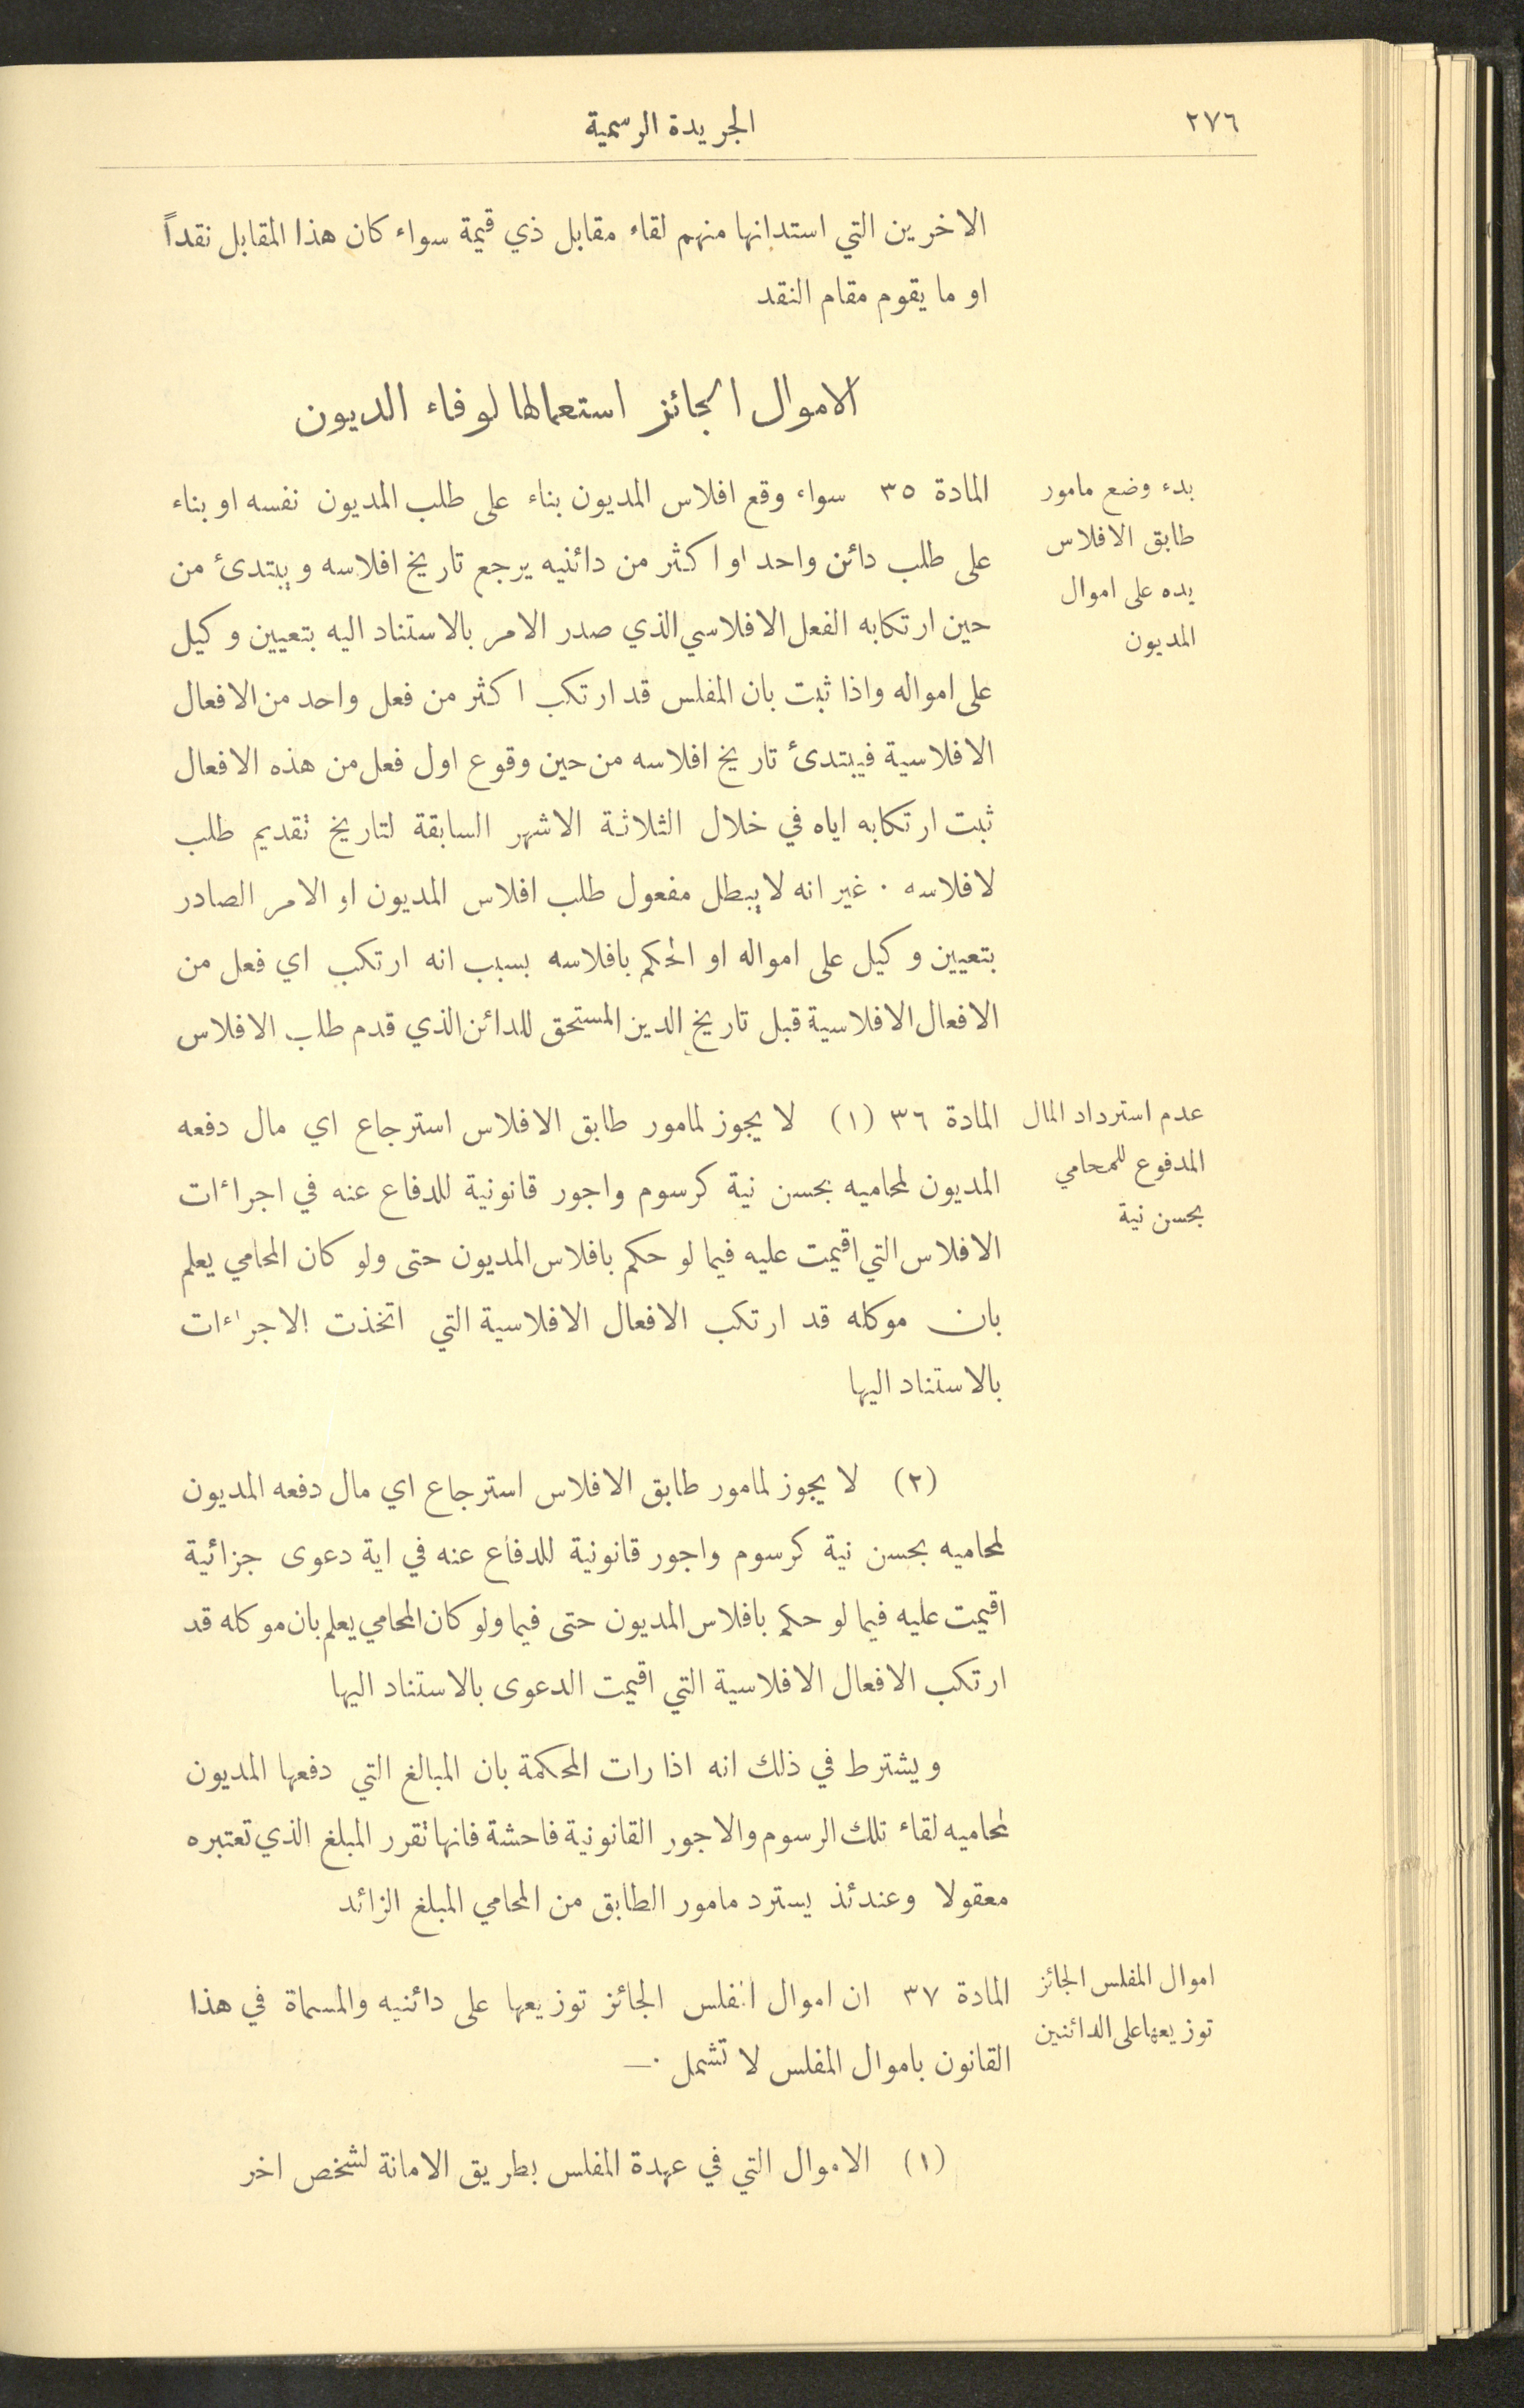 ٢٧٦
الجريدة الرسمية
الاخرين التي استدانها منهم لقاء مقابل ذي قيمة سواء كان هذا المقابل نقداً
او ما يقوم مقام النقد
الاموال الجائز استعمالها لوفاء الديون
بدء وضع مامور
طابق الافلاس
يده على اموال
المديون
المادة ٣٥ سواء وقع افلاس المديون بناء على طلب المديون نفسه او بناء
على طلب دائن واحد او اكثر من دائنيه يرجع تاريخ افلاسه ويبتدئ من
حين ارتكابه الفعل الافلاسي الذي صدر الامر بالاستناد اليه بتعيين وكيل
على امواله واذا ثبت بان المفلس قد ارتكب اكثر من فعل واحد من الافعال
الافلاسية فيبتدئ تاريخ افلاسه من حين وقوع اول فعل من هذه الافعال
ثبت ارتكابه اياه في خلال الثلاثة الاشهر السابقة لتاريخ تقديم طلب
لافلاسه . غير انه لا يبطل مفعول طلب افلاس المديون او الامر الصادر
بتعيين وكيل على امواله او الحكم بافلاسه بسبب انه ارتكب اي فعل من
الافعال الافلاسية قبل تاريخ الدين المستحق للدائن الذي قدم طلب الافلاس
عدم استرداد المال
المدفوع للمحامي
بحسن نية
المادة ٣٦ (١) لا يجوز لمامور طابق الافلاس استرجاع اي مال دفعه
المديون لمحاميه بحسن نية كرسوم واجور قانونية للدفاع عنه في اجراءات
الافلاس التي اقيمت عليه فيما لو حكم بافلاس المديون حتى ولو كان المحامي يعلم
بان موكله قد ارتكب الافعال الافلاسية التي اتخذت الاجراءات
بالاستناد اليها
(٢) لا يجوز لمامور طابق الافلاس استرجاع اي مال دفعه المديون
لمحاميه بحسن نية كرسوم واجور قانونية للدفاع عنه في اية دعوى جزائية
اقيمت عليه فيما لو حكم بافلاس المديون حتى فيما ولو كان المحامي يعلم بان موكله قد
ارتكب الافعال الافلاسية التي اقيمت الدعوى بالاستناد اليها
ويشترط في ذلك انه اذا رات المحكمة بان المبالغ التي دفعها المديون
لمحاميه لقاء تلك الرسوم والاجور القانونية فاحشة فانها تقرر المبلغ الذي تعتبره
معقولا وعندئذ يسترد مامور الطابق من المحامي المبلغ الزائد
اموال المفلس الجائز
توزيعها على الدائنين
المادة ٣٧ ان اموال المفلس الجائز توزيعها على دائنيه والمسماة في هذا
القانون باموال المفلس لا تشمل .—
(١) الاموال التي في عهدة المفلس بطريق الامانة لشخص اخر